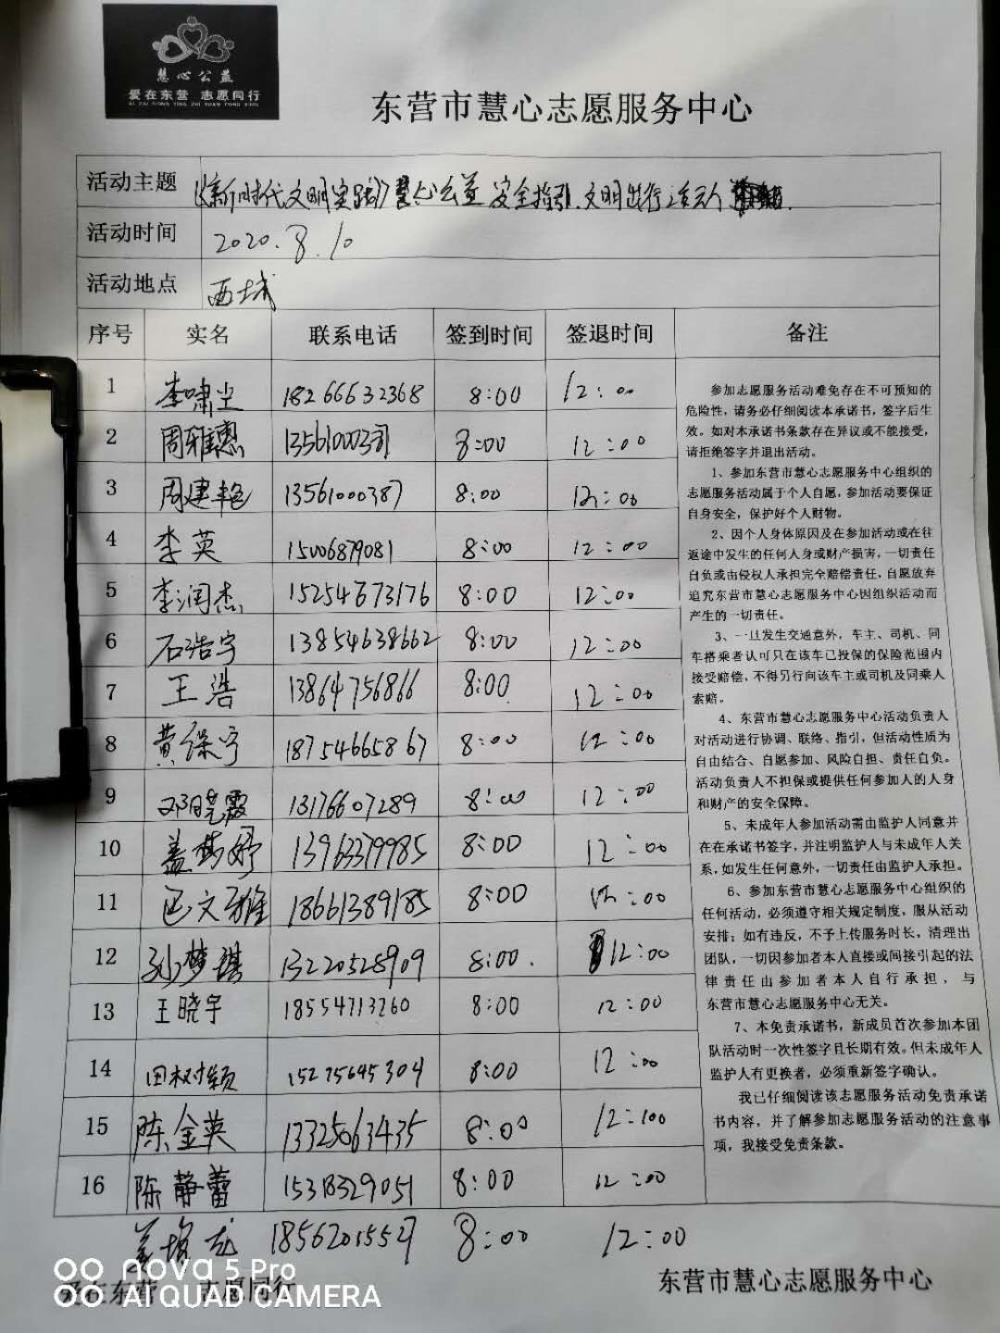 慧心公益
爱在东营 志愿同行
AI ZAI DONG YING ZHI YUAN TONG XING
东营市慧心志愿服务中心
活动主题 《新时代文明实践》慧心公益 安全指引.文明出行
活动时间 2020.8.10
活动地点 西城
序号 实名 联系电话 签到时间 签退时间 备注
1 李啸尘 18266632368 8:00 12:00
2 周雅惠 8:00 12:00
3 周建艳 13561000387 8:00 12:00
4 李英 15006879081 8:00 12:00
5 李润杰 15254673176 8:00 12:00
6 石浩宇 13854638662 8:00 12:00
7 王浩 13864756866 8:00 12:00
8 黄保宇 18754665867 8:00 12:00
9 邓晓霞 13176607289 8:00 12:00
10 盖梦妤 13963379985 8:00 12:00
11 文雅 18661389185 8:00 12:00
12 孙梦琪 13220528909 8:00. 12:00
13 王晓宇 18554713260 8:00 12:00
14 田树颖 15275645304 8:00 12:00
15 陈金英 13325063435 8:00 12:00
16 陈静蕾 15318329051 8:00 12:00
18562015527 8:00 12:00
参加志愿服务活动难免存在不可预知的
危险性，请务必仔细阅读本承诺书，签字后生
效。如对本承诺书条款存在异议或不能接受，
请拒绝签字并退出活动。
1、参加东营市慧心志愿服务中心组织的
志愿服务活动属于个人自愿，参加活动要保证
自身安全，保护好个人财物。
2、因个人身体原因及在参加活动或在往
返途中发生的任何人身或财产损害，一切责任
自负或由侵权人承担完全赔偿责任，自愿放弃
追究东营市慧心志愿服务中心因组织活动而
产生的一切责任。
3、一旦发生交通意外，车主、司机、同
车搭乘者认可只在该车已投保的保险范围内
接受赔偿，不得另行向该车主或司机及同乘人
索赔。
4、东营市慧心志愿服务中心活动负责人
对活动进行协调、联络、指引，但活动性质为
自由结合、自愿参加、风险自担、责任自负。
活动负责人不担保或提供任何参加人的人身
和财产的安全保障。
5、未成年人参加活动需由监护人同意并
在在承诺书签字，并注明监护人与未成年人关
系，如发生任何意外，一切责任由监护人承担。
6、参加东营市慧心志愿服务中心组织的
任何活动，必须遵守相关规定制度，服从活动
安排；如有违反，不予上传服务时长，清理出
团队，一切因参加者本人直接或间接引起的法
律责任由参加者本人自行承担，与
东营市慧心志愿服务中心无关。
7、本免责承诺书，新成员首次参加本团
队活动时一次性签字且长期有效。但未成年人
监护人有更换者，必须重新签字确认。
我已仔细阅读该志愿服务活动免责承诺
书内容，并了解参加志愿服务活动的注意事
项，我接受免责条款。
爱在东营 志愿同行 东营市慧心志愿服务中心
nova 5 Pro
AI QUAD CAMERA